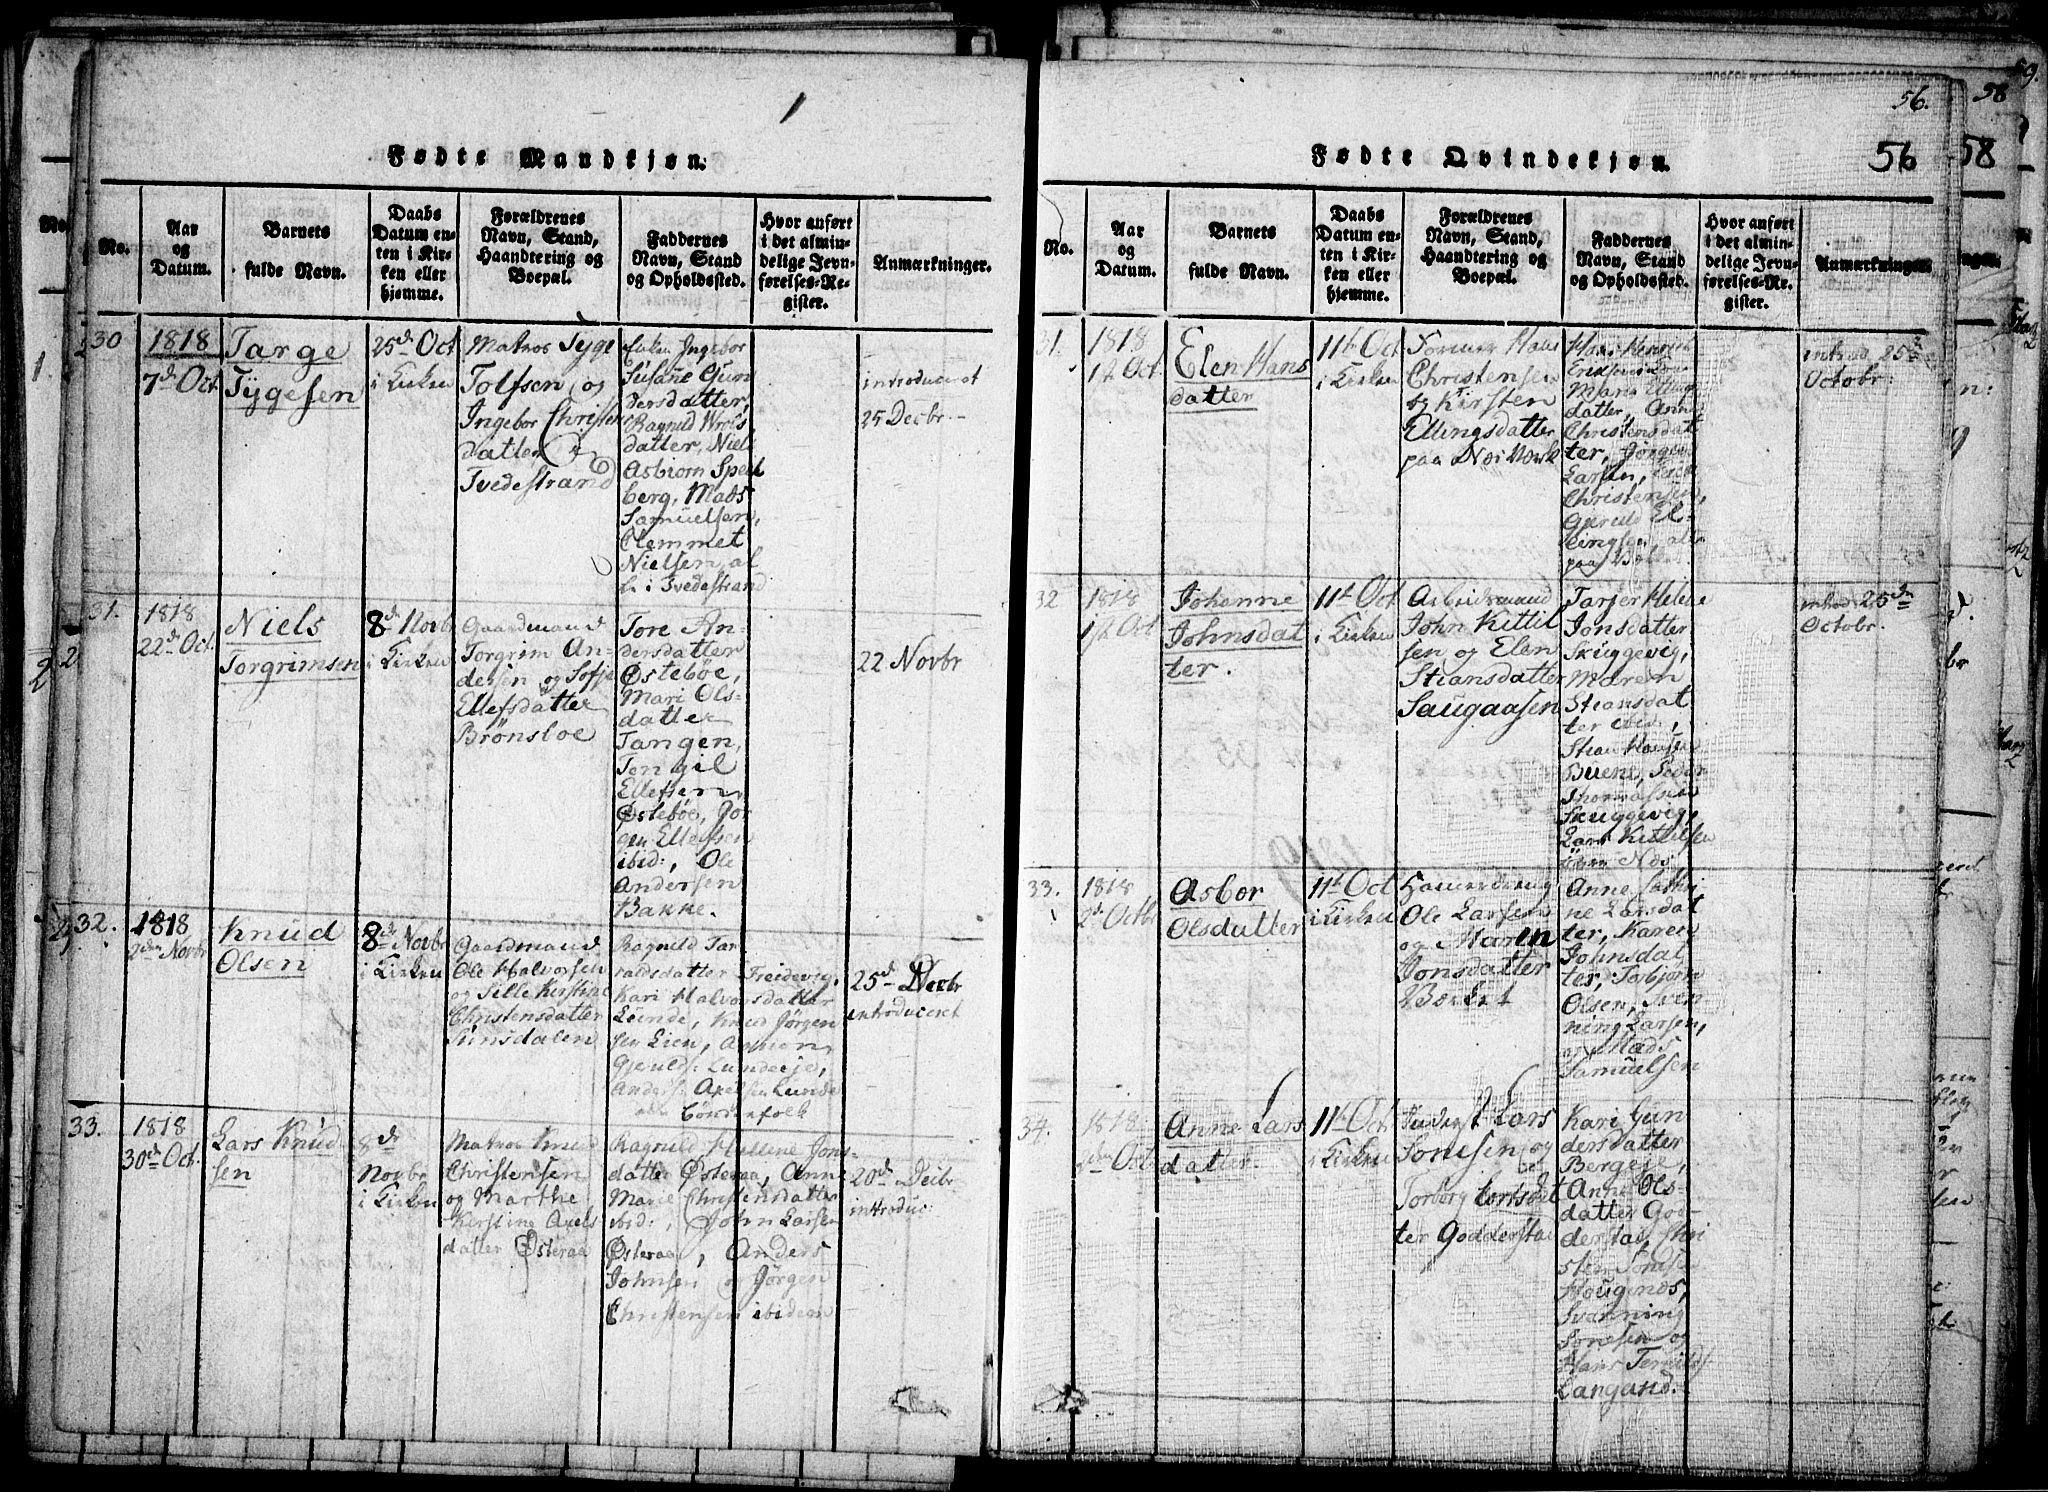 56.
58
59
Fødte Mandkjøn.
No.
Aar og Datum.
Barnets fulde Navn.
Daabs Datum enten i Kirken eller hjemme.
Forældrenes Navn, Stand, Haandtering og Boepæl.
Faddernes Navn, Stand og Opholdssted.
Hvor anført i det almindelige Jevnførelses-Register.
Anmærkninger.
30
1818
7d Oct.
Targe
Tygesen
25d Oct
i Kirken
Matros Tyge
Tolfsen og
Ingebor Christens
datter
Tvedestrand
Enken Ingebor
Susane Gun
dersdatter,
Ragnild Wrols
datter, Niels
Asbiorn Speil
berg, Mads
Samuelsen,
Clemmet
Nielsen, al
le i Tvedestrand
introduceret
25 Decbr.
31.
1818
22d Oct.
Niels
Torgrimsen
8d Novbr
i Kirken
Gaardmand
Torgrim An
dersen og Sofje
Ellefsdatter
Brönsloe
Tore An-
dersdatter
Østebøe,
Mari Ols-
datter
Tangen,
Tengil
Ellefsen
Østebøe, Jör
gen Ellefsen
ibid:, Ole
Andersen
Bakke.
22 Novbr
32.
1818
2den Novbr
Knud
Olsen
8d Novbr
i Kirken
Gaardmand
Ole Halvorsen
og Sille Kirstine
Christensdatter
Sunsdalen
Ragnild Tar
aldsdatter Freidevig,
Kari Halvorsdatter
Lunde, Knud Jörgen
sen Lien, Aamon
Gjerulds: Lundeije,
Anders: Axelsen Lunde
alle Böndenfolk
25d Decbr
introduceret
33.
1818
30d Oct.
Lars Knud
sen
8d
Novbr
i Kirken
Matros Knud
Christensen
og Marthe
Kirstine Axels
datter Østeraa
Ragnild Hellene Jons-
datter Østeraa, Anne
Marie Christensdatter
ibid:, John Larsen
Østeraa, Anders
Johnsen og Jörgen
Christensen ibidem
20d Decbr
introduc:
Fødte Qvindekjøn.
56
58
No.
Aar og Datum.
Barnets fulde Navn.
Daabs Datum enten i Kirken eller hjemme.
Forældrenes Navn, Stand, Haandtering og Boepæl.
Faddernes Navn, Stand og Opholdssted.
Hvor anført i det almindelige Jevnførelses-Register.
Anmærkninger
31.
1818
1st Oct.
Elen Hans
datter
11t Oct
i Kirken
Former Hans
Christensen
og Kirsten
Ellingsdatter
paa Næs Værk
Hans Henrich
Maria Elling
datter, Anne
Christensdat
ter, Jörgen
Larsen,
Christensen,
Gjeruld El-
lingsen, alle
introd. 25de
Octobr.
32
1818
1st Oct
Johanne
Johnsdat
ter.
11t Oct
i Kirken
Arbeidsmand
John Kittel
sen og Elen
Stiansdatter
Saugaasen
Tarjer Helene
Jonsdatter
Skuggevig,
Maren
Stiansdat
ter ibid,
Stian Hansen
Buene, Peder
Thomassen
Skuggevig,
Lars Kittelsen
Næs
introd: 25de
Octobr.
33.
1818
2d Octbr
Asbor
Olsdatter
11t Oct
i Kirken
Ole Larsen
og Maren
Jonsdatter
Værket
Anne Cathri
ne Larsdat
ter, Karen
Johnsdat
ter, Torbjörn
Olsen, Sven
ning Larsen,
og Mads
Samuelsen
34.
1818
Oct
Anne Lars
datter
11t Oct
i Kirken
Lars
Sonesen og
Torborg
ter Godderstad
Kari Gun
dersdatter
Bergeje,
Anne Ols-
datter God-
derstad, Chri
sten Sonesen
Hougenes,
Svenning
Sonesen og
Hans Terjulds:
Langand.